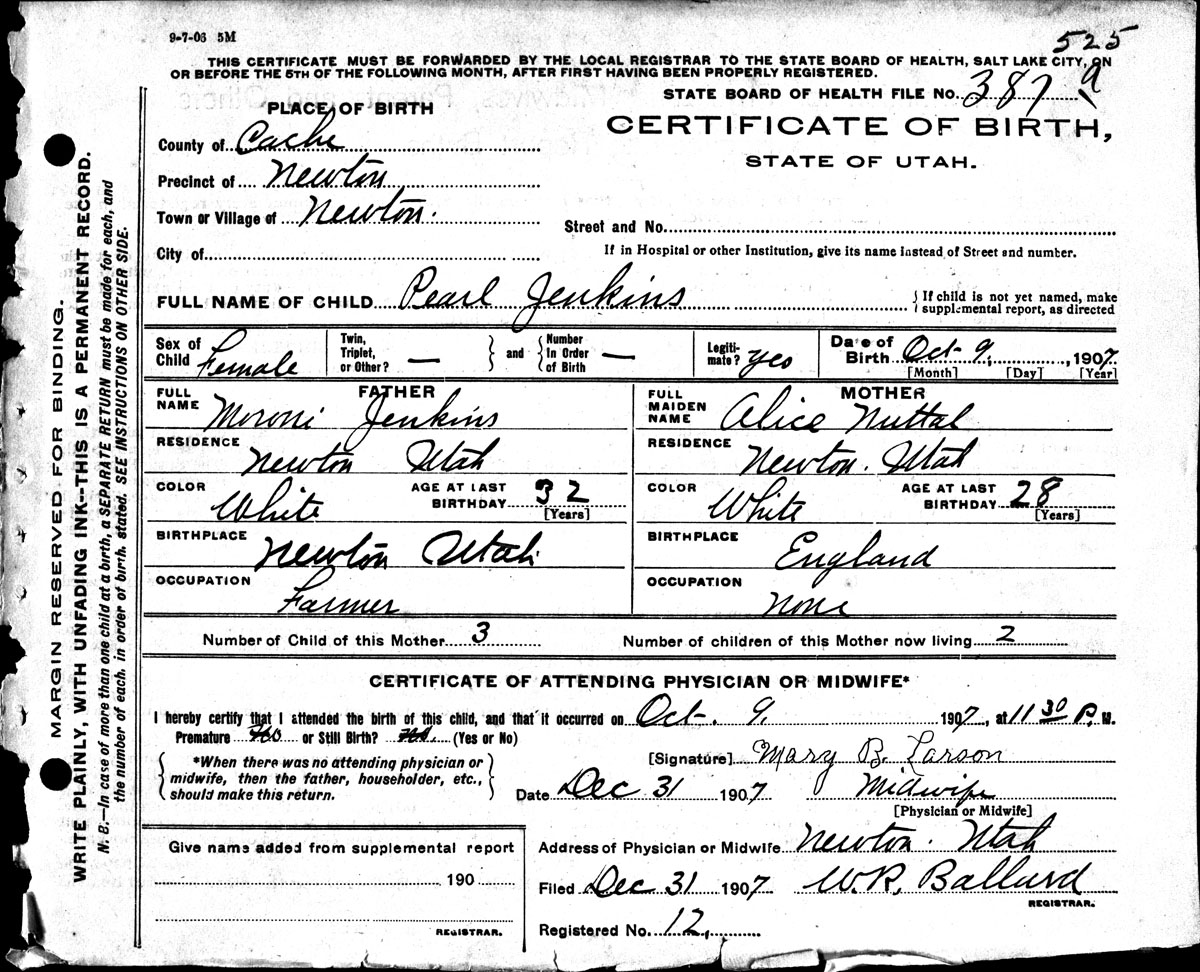 9-7-06 5M
525
THIS CERTIFICATE MUST BE FORWARDED BY THE LOCAL REGISTRAR TO THE STATE BOARD OF HEALTH, SALT LAKE CITY, ON
OR BEFORE THE 5TH OF THE FOLLOWING MONTH, AFTER FIRST HAVING BEEN PROPERLY REGISTERED.
STATE BOARD OF HEALTH FILE No. 387 9
PLACE OF BIRTH
CERTIFICATE OF BIRTH,
STATE OF UTAH.
County of Cache
Precinct of Newton
Town or Village of Newton.
Street and No.
City of
If in Hospital or other Institution, give its name instead of Street and number.
FULL NAME OF CHILD Pearl Jenkins
If child is not yet named, make
supplemental report, as directed
Sex of Child Female
Twin, Triplet, or Other? —
and Number In Order of Birth —
Legiti- mate? yes
Date of Birth Oct- 9, 1907
[Month] [Day] [Year]
FATHER
FULL NAME Moroni Jenkins
RESIDENCE Newton Utah
COLOR White
AGE AT LAST BIRTHDAY 32 [Years]
BIRTHPLACE Newton Utah
OCCUPATION Farmer
MOTHER
FULL MAIDEN NAME Alice Nuttal
RESIDENCE Newton. Utah
COLOR White
AGE AT LAST BIRTHDAY 28 [Years]
BIRTHPLACE England
OCCUPATION None
Number of Child of this Mother 3
Number of children of this Mother now living 2
CERTIFICATE OF ATTENDING PHYSICIAN OR MIDWIFE*
I hereby certify that I attended the birth of this child, and that it occurred on Oct. 9, 1907, at 11 30 P. M.
Premature No or Still Birth? No. (Yes or No)
*When there was no attending physician or
midwife, then the father, householder, etc.,
should make this return.
[Signature] Mary B. Larson
Date Dec 31 1907 Midwife
[Physician or Midwife]
Address of Physician or Midwife Newton. Utah
Filed Dec 31 1907 W. R. Ballard
REGISTRAR.
Registered No. 12,
Give name added from supplemental report
190
REGISTRAR.
MARGIN RESERVED FOR BINDING.
WRITE PLAINLY, WITH UNFADING INK--THIS IS A PERMANENT RECORD.
N. B.—In case of more than one child at a birth, a SEPARATE RETURN must be made for each, and
the number of each, in order of birth, stated. SEE INSTRUCTIONS ON OTHER SIDE.